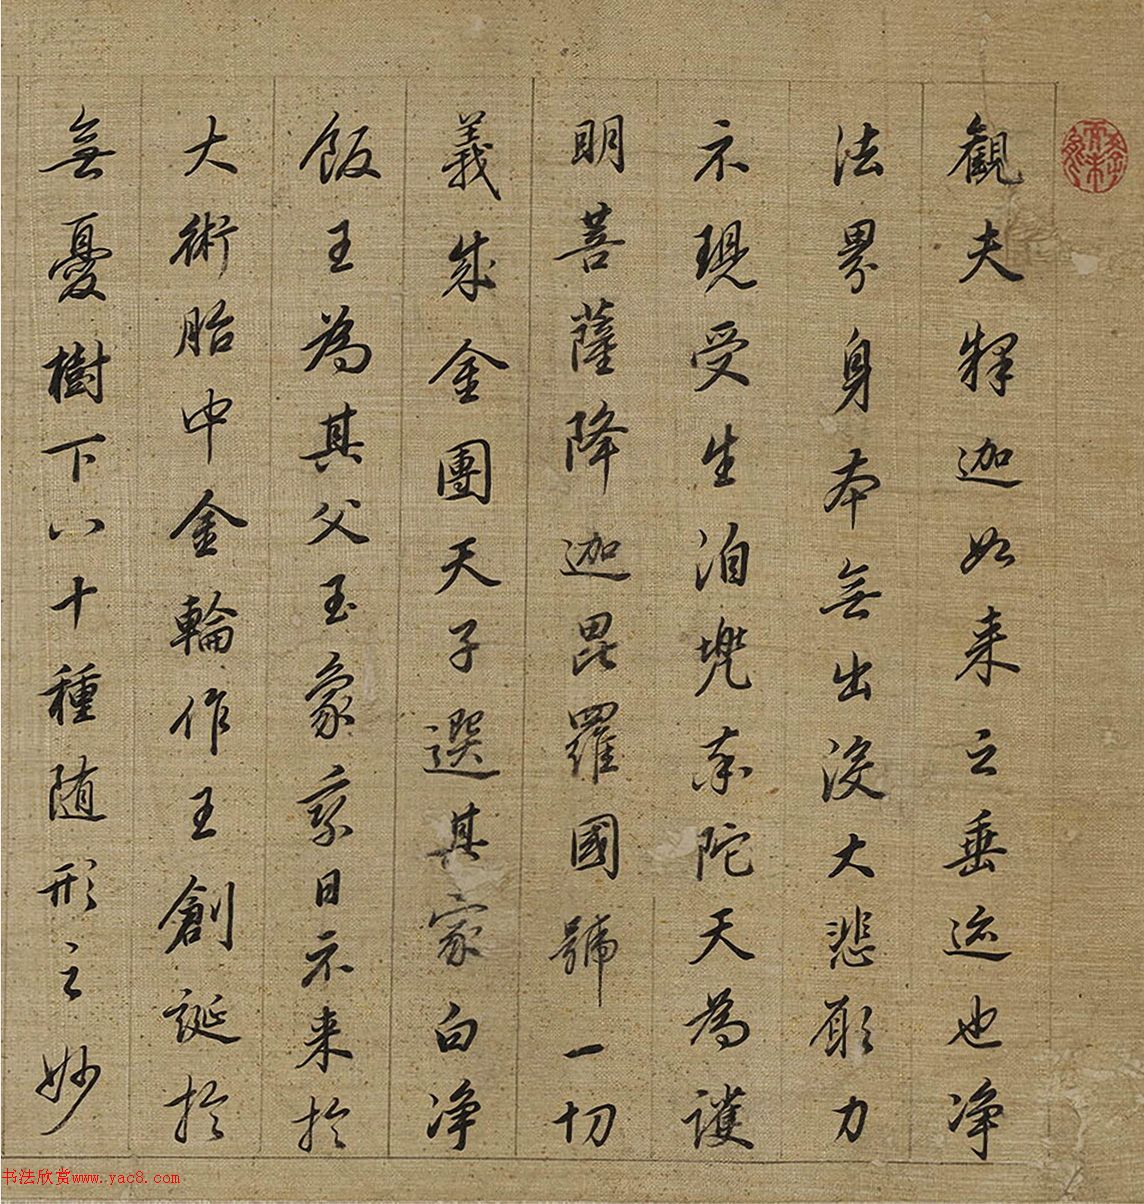 觀夫釋迦如来之垂迹也净
法界身本無出没大悲願力
示現受生洎兠率陀天為護
明菩薩降迦毘羅國號一切
義成金團天子選其家白净
飯王為其父玉象乘日示来於
大術胎中金輪作王創誕於
無憂樹下八十種随形之妙
书法欣赏www.yac8.com